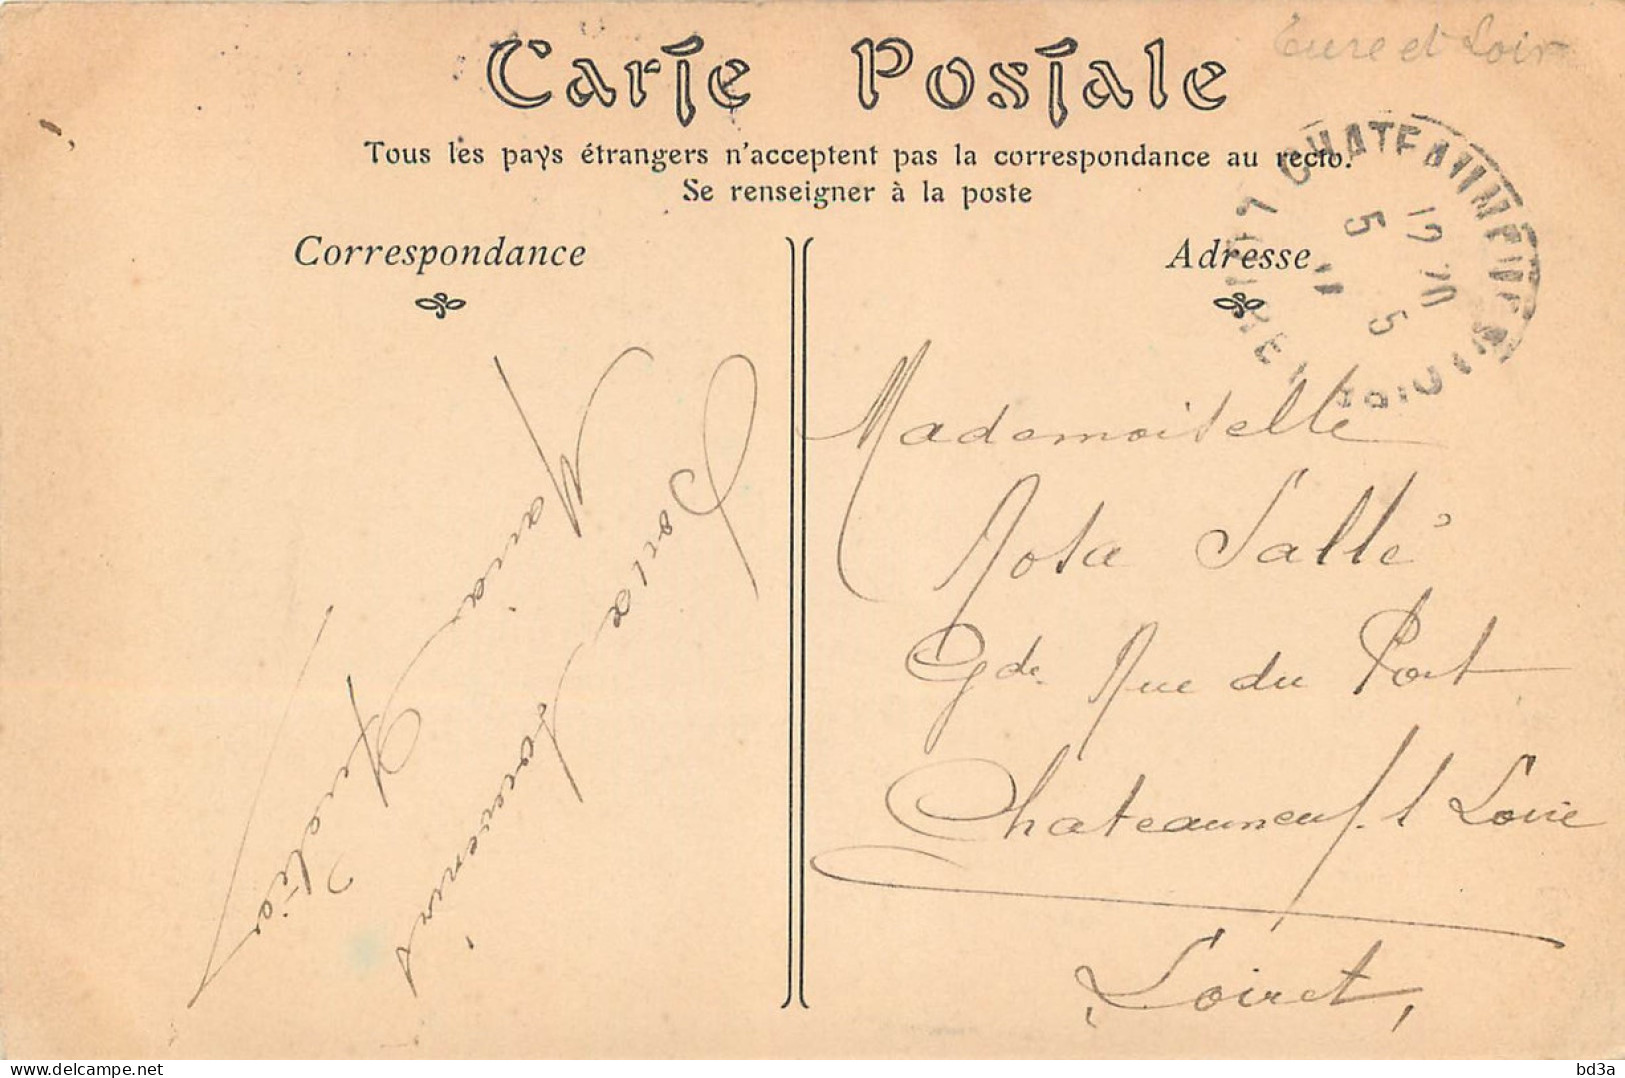 Eure et Loir
Carte Postale
Tous les pays étrangers n'acceptent pas la correspondance au recto.
Se renseigner à la poste
Correspondance
Adresse
CHATEAUNEUF
19 20
5 5
11
Mademoiselle
Rosa Sallé
Gde Rue du Port
Chateauneuf s Loire
Loiret
souvenirs
Maria
delcampe.net
bd3a